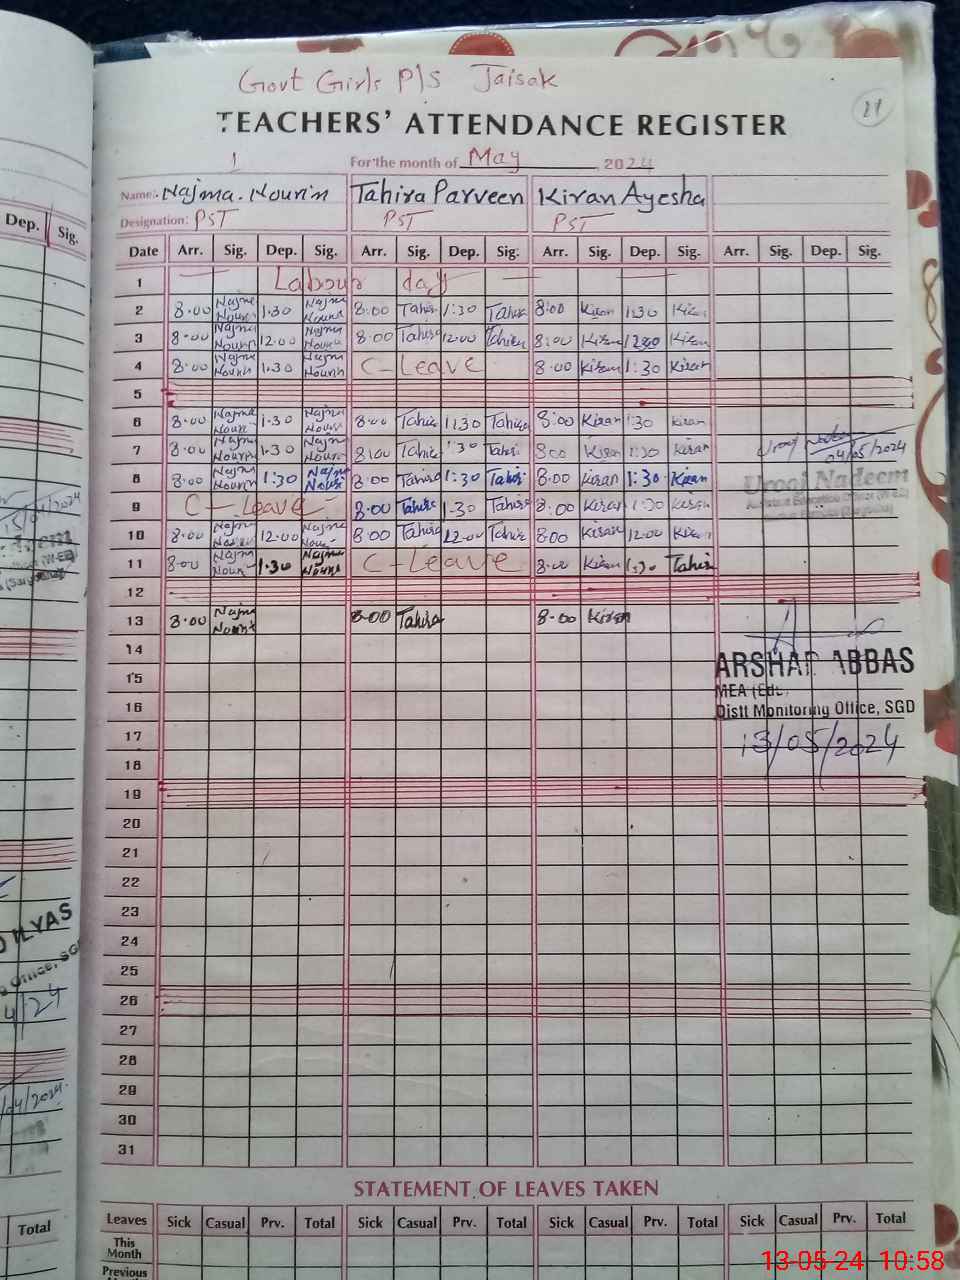 Govt Girls P/S Jaisak
21
TEACHERS' ATTENDANCE REGISTER
1
For the month of May, 2024
Name: Najma Nourin Tahira Parveen Kiran Ayesha
Designation: PST PST PST
Dep. Sig.
Date Arr. Sig. Dep. Sig. Arr. Sig. Dep. Sig. Arr. Sig. Dep. Sig. Arr. Sig. Dep. Sig.
1 Labour day
2 8.00 Najma Nourin 1.30 Najma Nourin 8:00 Tahira 1:30 Tahira 8:00 Kiran 1:30 Kiran
3 8.00 Najma Nourin 12.00 Najma Nourin 8.00 Tahira 12.00 Tahira 8:00 Kiran 12:00 Kiran
4 8.00 Najma Nourin 1.30 Najma Nourin C-Leave 8.00 Kiran 1:30 Kiran
5
6 8.00 Najma Nourin 1.30 Najma Nourin 8:00 Tahira 1:30 Tahira 8:00 Kiran 1:30 Kiran
7 8.00 Najma Nourin 1.30 Najma Nourin 8:00 Tahira 1:30 Tahira 8:00 Kiran 1:30 Kiran
24/05/2024
8 8.00 Najma Nourin 1:30 Najma Nourin 8.00 Tahira 1:30 Tahira 8.00 Kiran 1:30 Kiran
Urooj Nadeem
9 C-Leave 8.00 Tahira 1.30 Tahira 8:00 Kiran 1:30 Kiran
10 8.00 Najma Nourin 12.00 Najma Nourin 8:00 Tahira 12.00 Tahira 8:00 Kiran 12.00 Kiran
11 8.00 Najma Nourin 1.30 Najma Nourin C-Leave 8.00 Kiran 1:30 Tahira
12
13 8.00 Najma Nourin 8.00 Tahira 8.00 Kiran
14
ARSHAD ABBAS
15
MEA (Edu)
16
Distt Monitoring Office, SGD
17
13/05/2024
18
19
20
21
22
23
24
25
26
27
28
29
30
31
15/04/2024
ILYAS
Office, SGD
/04/2024
STATEMENT OF LEAVES TAKEN
Total
Leaves Sick Casual Prv. Total Sick Casual Prv. Total Sick Casual Prv. Total Sick Casual Prv. Total
This Month
Previous
13-05-24 10:58